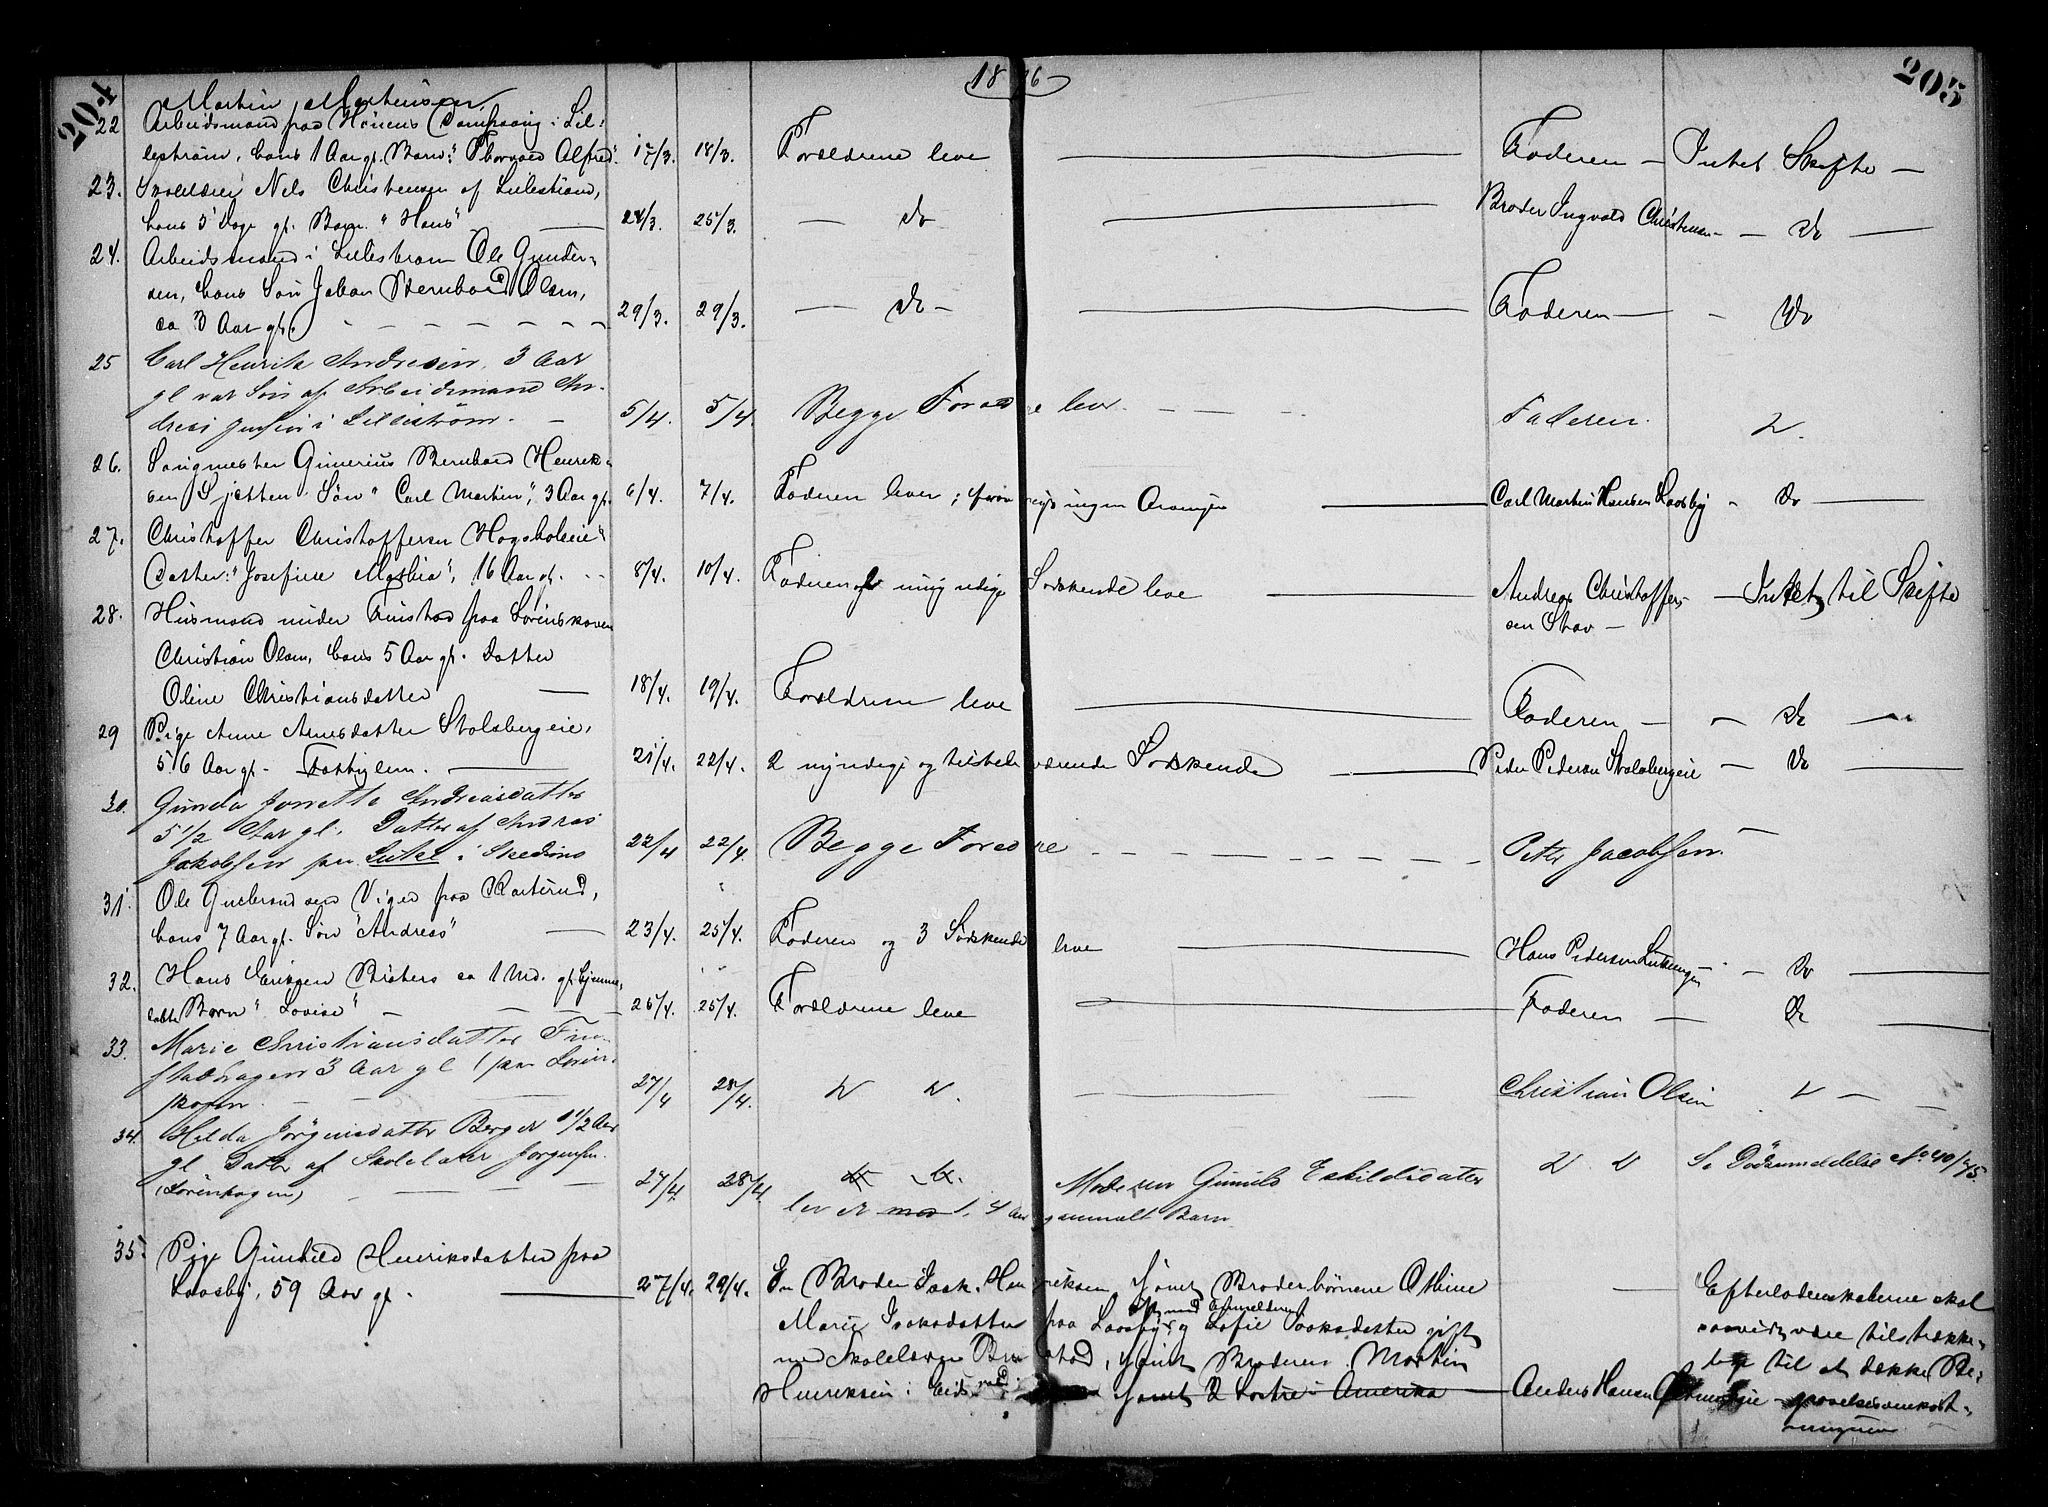 204
18 6
205
Martin Mortensen
22 Arbeidsmand paa Hönens Compani i Lil-
lestrøm, hans 1 Aar gl. Barn: "Thorvald Alfred". 17/3. 18/3. Forældrene leve Faderen — Intet Skifte —
23. Skolelærer Nels Christensen af Lillestrøm,
hans 5 Dage gl. Barn "Hans" 24/3. 25/3. — do Broder Ingvald Christensen — do —
24. Arbeidsmand i Lillestrøm Ole Gunder-
sen, hans Søn Johan Bernhard Olsen,
ca 3 Aar gl. 29/3. 29/3. — do — Faderen — do
25 Carl Henrik Andresen, 3 Aar
gl var Søn af Arbeidsmand An-
dreas Jensen i Lillestrøm. — 5/4. 5/4. Begge Foræ e lever. Faderen. do.
26. Saugmester Gunerius Bernhard Henrik-
sen Sjetten Søn "Carl Martin", 3 Aar gl. 6/4. 7/4. Faderen lever; ingen Arvinger Carl Martin Hansen Laasby — do —
27. Christoffer Christoffersen
Datter: "Josefine Mathia", 16 Aar gl. 8/4. 10/4. Faderen og umyndige Sødskende leve Andreas Christoffer- — Intet til Skifte
sen Stav —
28. Husmand under Finstad paa Sørenskoven
Christian Olsen, hans 5 Aar gl. Datter
Oline Christiansdatter — 18/4. 19/4. Forældrene leve Faderen — — do —
29 Pige Anne Arnesdatter Stolsbergeie,
56 Aar gl. Fattiglem. — 21/4. 22/4. 2 myndige og tilstedeværende Sødskende Peder Pedersen Stolsbergeie — do —
30. Gunda Jonette Andreasdatter
5 1/2 Aar gl. Datter af Andreas
Jakobsen paa i Skedsmo 22/4 22/4. Begge Foræ re Peter Jacobsen —
31. Ole Gulbrandsen Viger paa
hans 7 Aar gl. Søn "Andreas" — 23/4. 25/4. Faderen og 3 Sødskende leve Hans Pedersen — do —
32. Hans Eriksen ca 1 Md. gl. hjemme-
døbte Barn "Lovise" — 25/4. 25/4. Forældrene leve Faderen — do
33. Marie Christiansdatter Fin-
stadhagen 3 Aar gl (paa Sørens-
skoven. — 27/4 28/4. do do. Christian Olsen do —
34. Hilda Jörgensdatter Berger 1 1/2 Aar
gl Datter af Skolelærer Jørgensen
(Sörenhagen) — 27/4. 28/4. do do. Moderen Gunild Eskildsdatter do do Se Dödsanmeldelse No 40/75.
lever med 1, 4 Aar gammelt Barn
35. Pige Gunhild Henriksdatter paa
Laasby, 59 Aar gl. — 27/4. 29/4. En Broder Isak Henriksen, samt Broderbørnene Othine Efterladenskaberne skal
Marie Isaksdatter paa Laasby og Sofie Isaksdatter gift saavidt være tilstrække-
med Skolelærer , samt Broderen Martin lige til at dække Be-
Henriksen i Eidsvold samt 2 Søstre i Amerika — Anders Hansen gravelsesomkost-
ningerne